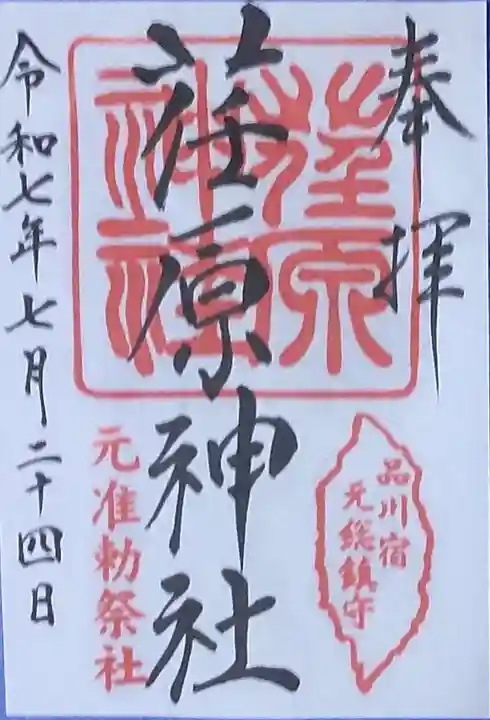 奉拝
品川宿
元総鎮守
荏原神社
荏原
神社
元准勅祭社
令和七年七月二十四日